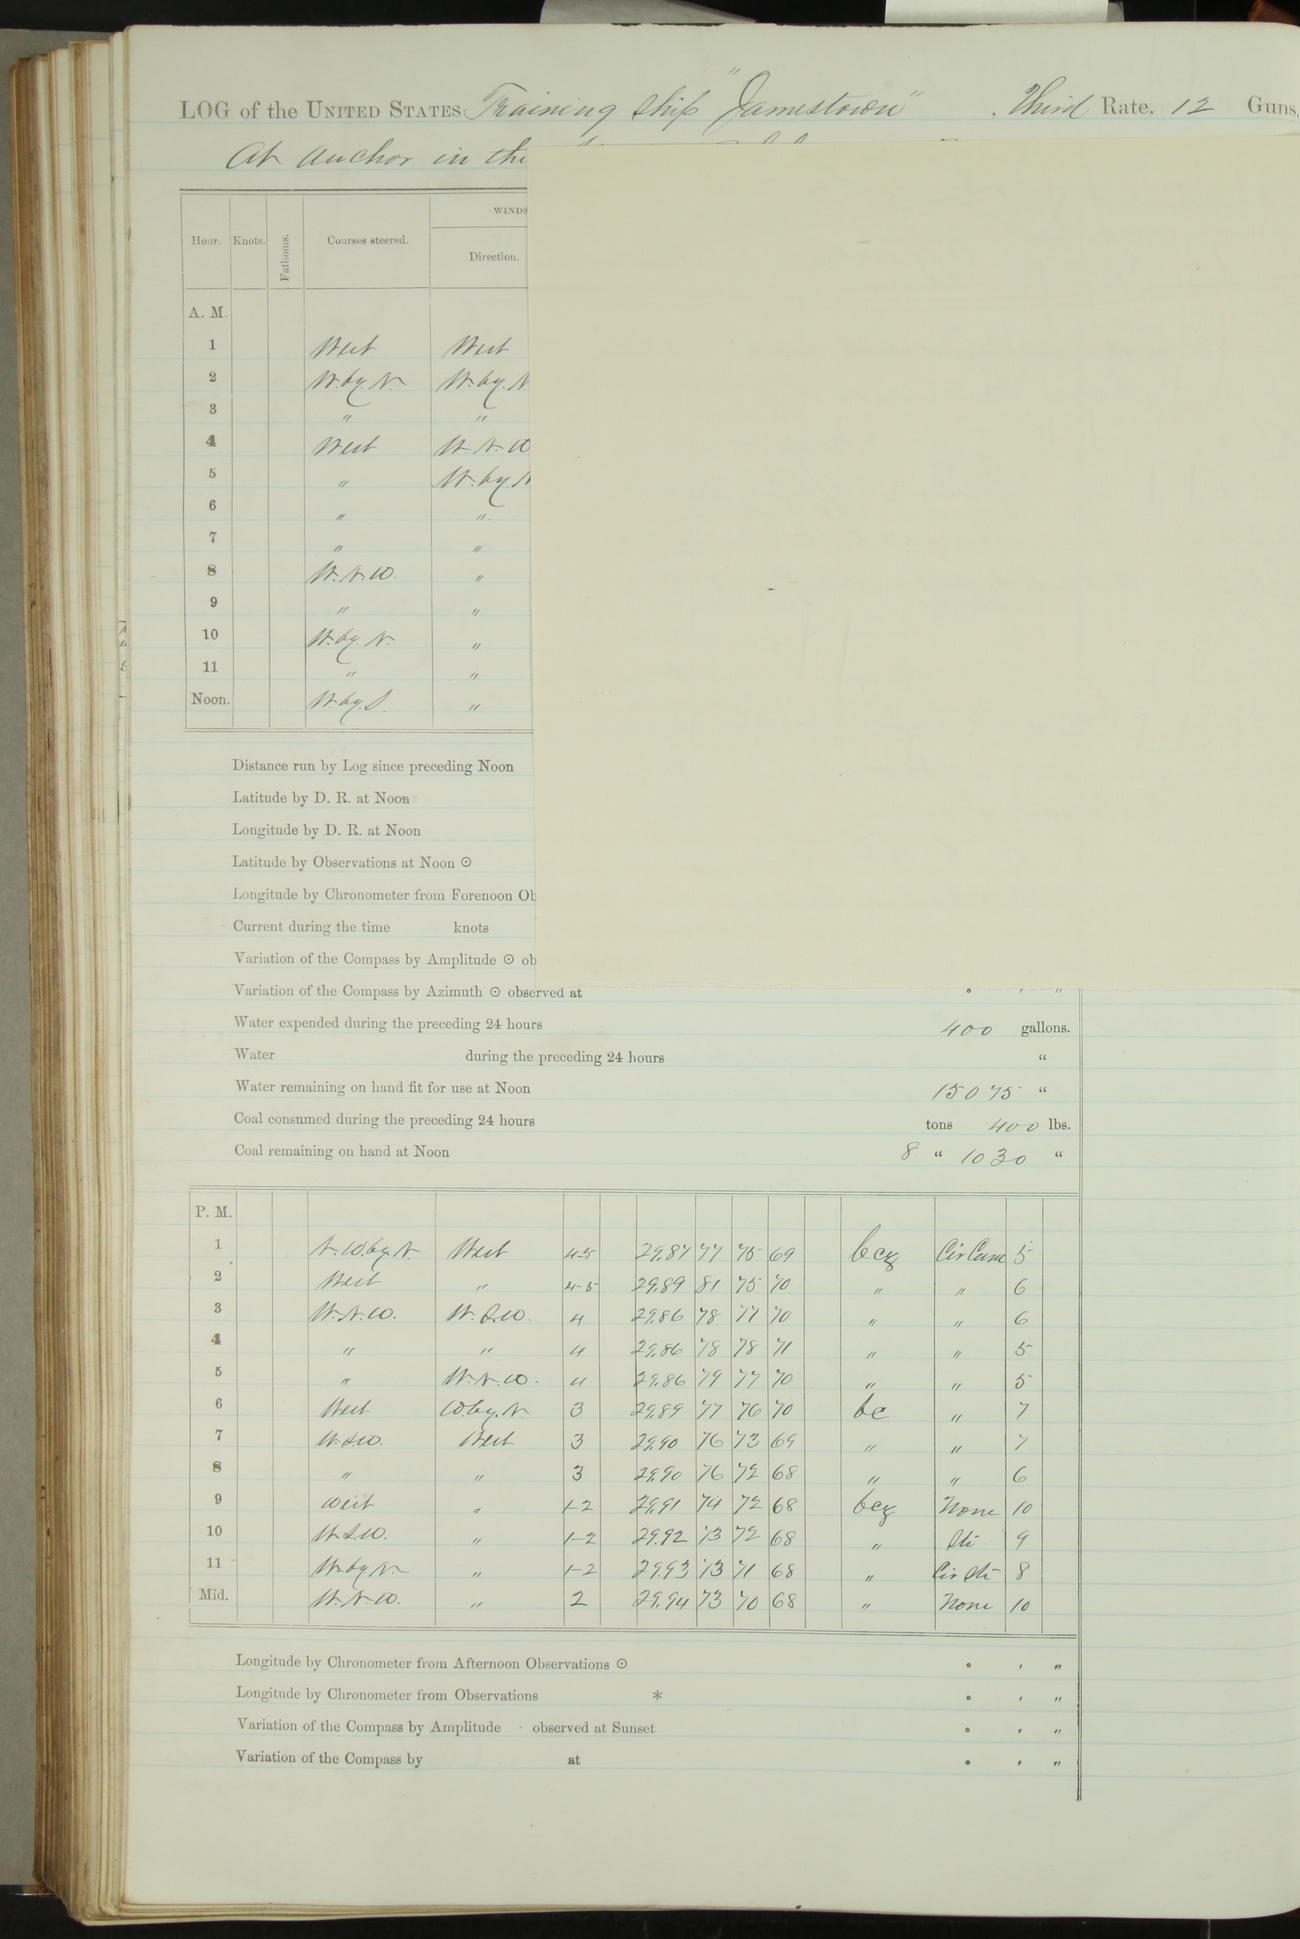 LOG of the UNITED STATES Training Ship "Jamestown", Third Rate, 12 Guns,
At anchor in the
WINDS
Hour. Knots. Fathoms. Courses steered. Direction.
A. M.
1 West West
2 W. by. N. W. by. N
3 " "
4 West W. N. W
5 " W. by. N
6 " "
7 " "
8 W. N. W. "
9 " "
10 W. by. N. "
11 " "
Noon. W. by. S. "
Distance run by Log since preceding Noon
Latitude by D. R. at Noon
Longitude by D. R. at Noon
Latitude by Observations at Noon ⊙
Longitude by Chronometer from Forenoon Ob
Current during the time knots
Variation of the Compass by Amplitude ⊙ ob
Variation of the Compass by Azimuth ⊙ observed at ° ' "
Water expended during the preceding 24 hours 400 gallons.
Water during the preceding 24 hours "
Water remaining on hand fit for use at Noon 15075 "
Coal consumed during the preceding 24 hours tons 400 lbs.
Coal remaining on hand at Noon 8 " 1030 "
P. M.
1 N. W. by. N West 4-5 29.87 77 75 69 bcz Cir Cum 5
2 West " 4-5 29.89 81 75 70 " " 6
3 W. N. W. W. S. W. 4 29.86 78 77 70 " " 6
4 " " 4 29.86 78 78 71 " " 5
5 " W. N. W. 4 29.86 79 77 70 " " 5
6 West W. by. N. 3 29.89 77 76 70 bc " 7
7 W. S. W. West 3 29.90 76 73 69 " " 7
8 " " 3 29.90 76 72 68 " " 6
9 West " 1-2 29.91 74 72 68 bcz None 10
10 W. S. W. " 1-2 29.92 73 72 68 " Sti 9
11 W. by N. " 1-2 29.93 73 71 68 " Cir Sti 8
Mid. W. N. W. " 2 29.94 73 70 68 " None 10
Longitude by Chronometer from Afternoon Observations ⊙ ° ' "
Longitude by Chronometer from Observations * ° ' "
Variation of the Compass by Amplitude observed at Sunset ° ' "
Variation of the Compass by at ° ' "